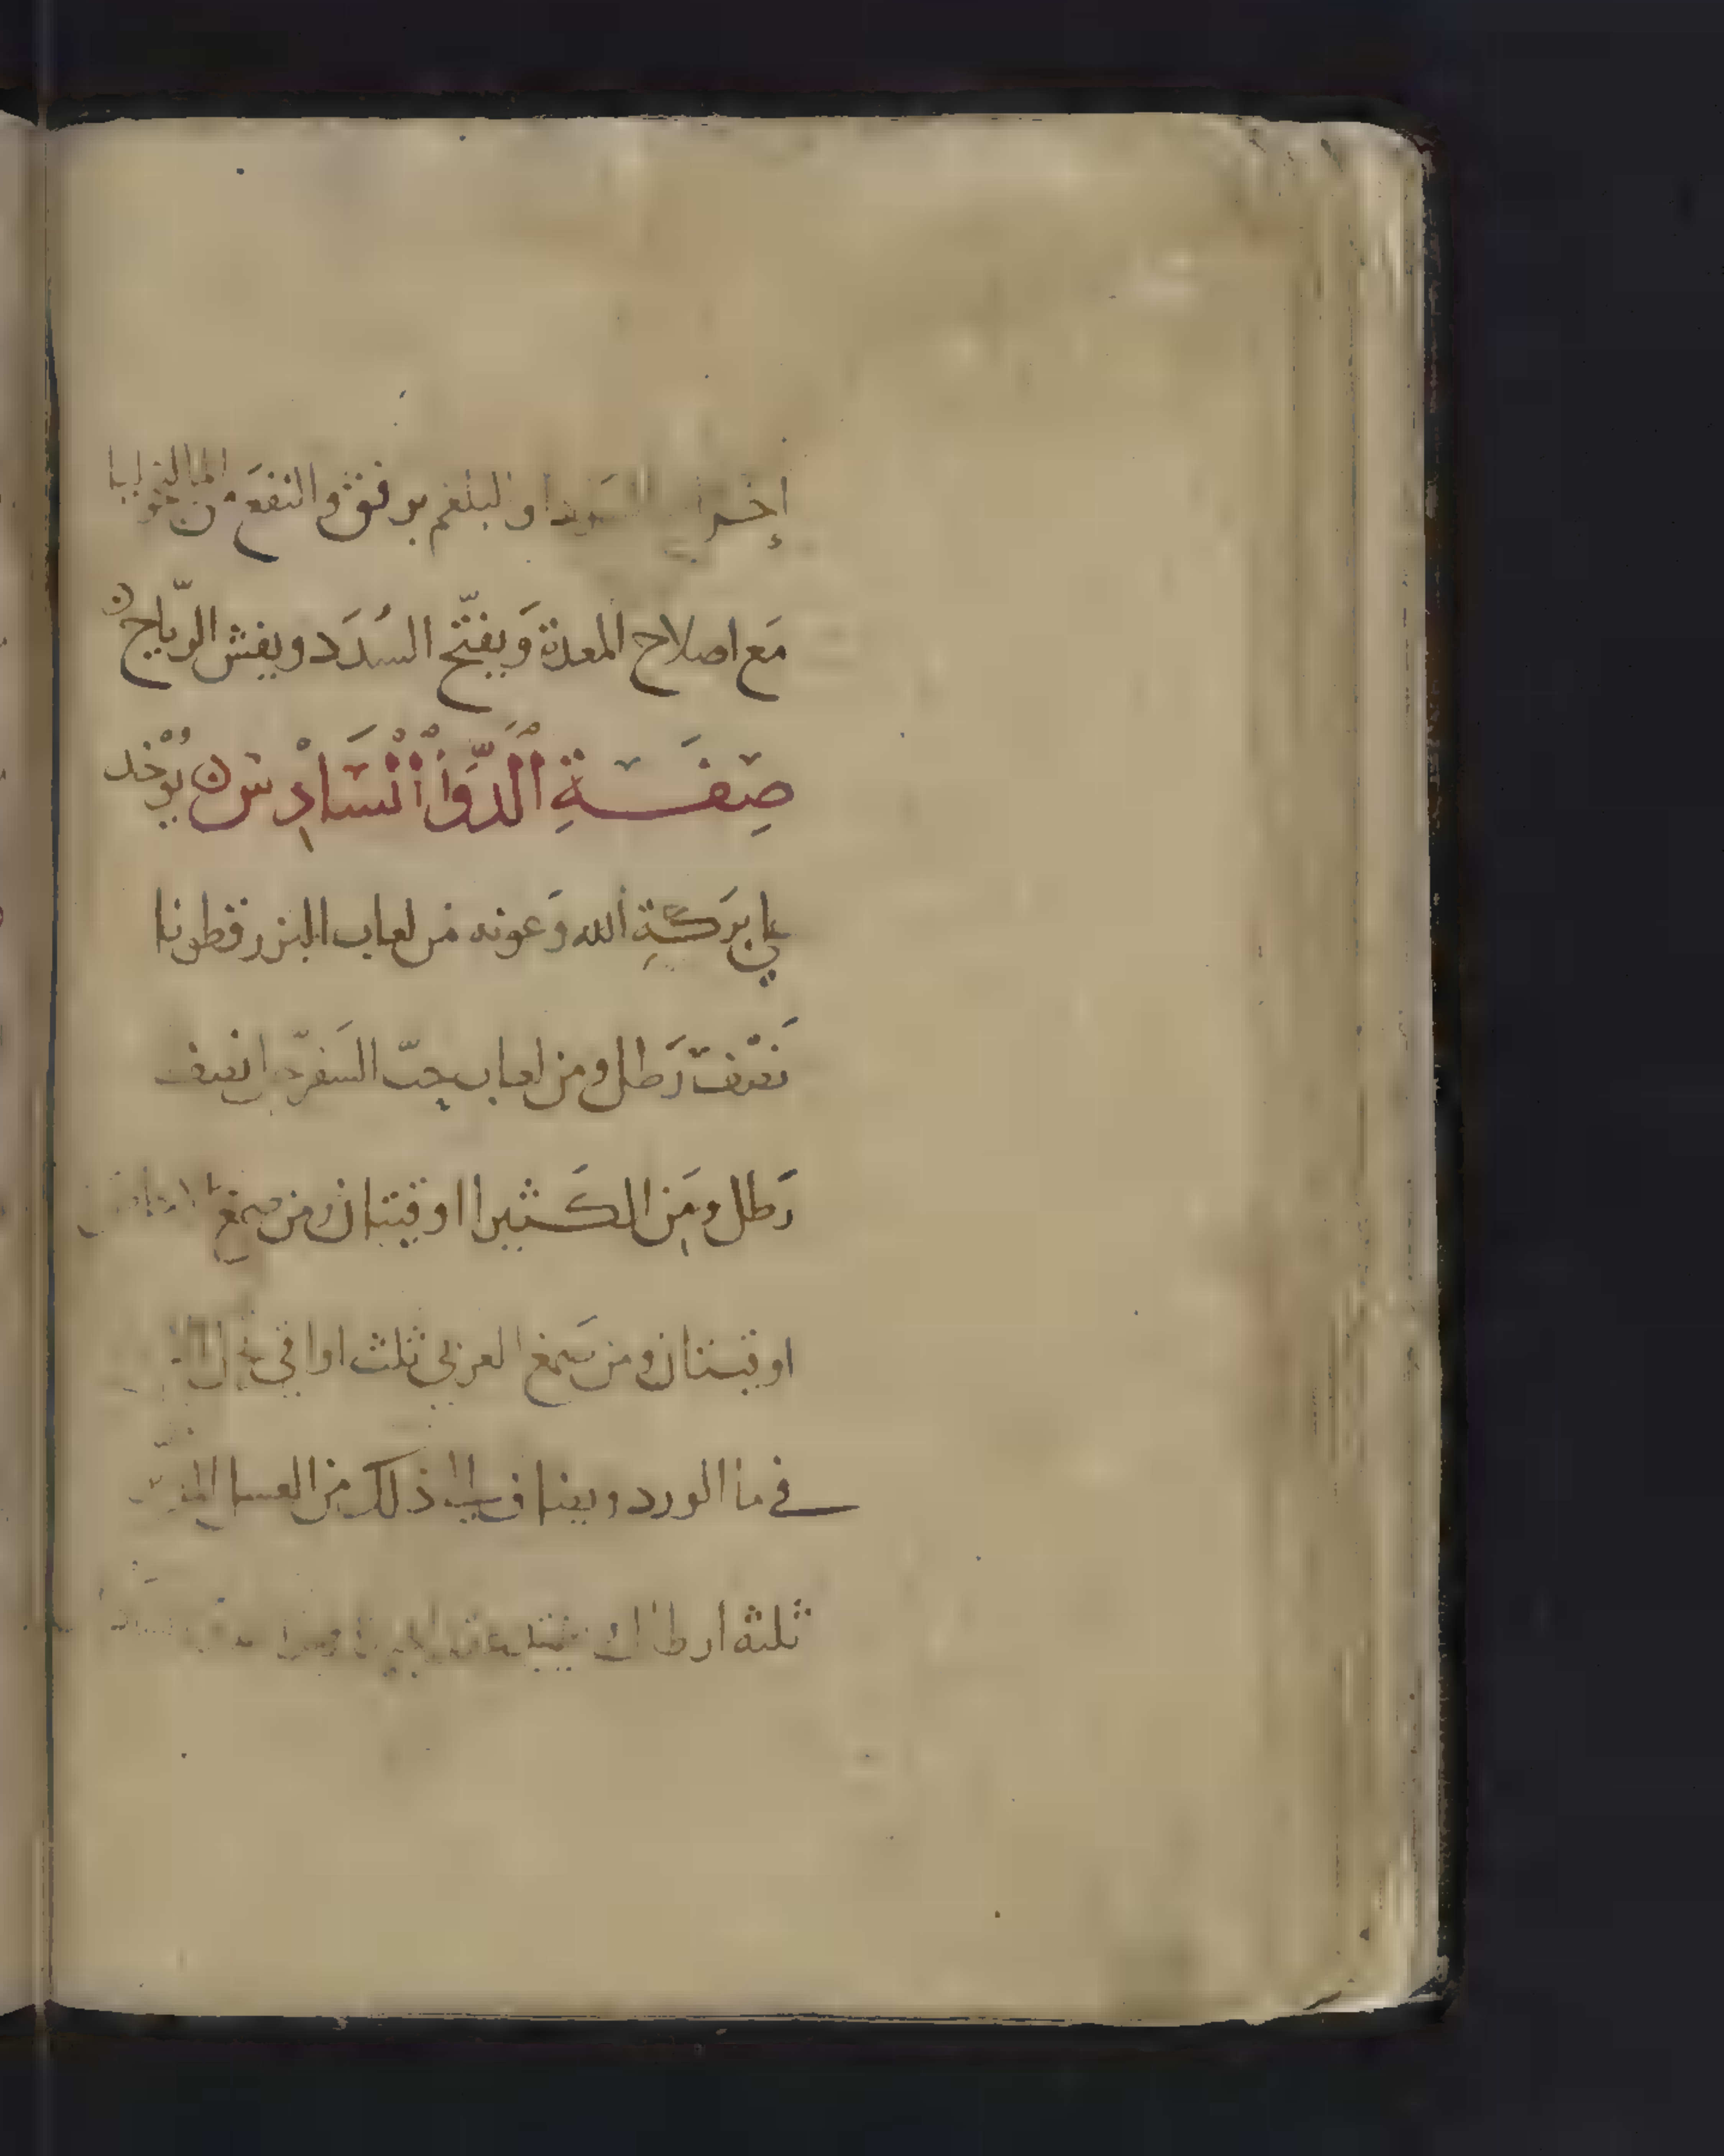 إخراج السودا والبلغم برفق والنفع من المالنخوليا
مَع اصلاح المعدة وَيفتّح السُدَد ويفش الريّاح
صِفَة الدَّوَا السَّادِس يُوْخد
علي بَركَةِ الله وَعونه من لعاب البزرقطونا
نَصْف رَطل ومن لعاب حبّ السَفرجل نصف
رَطل ومَن الكَثيرا اوقيتان ومن صمغ
اوقيتان ومن صَمغ العربي ثلث اواقي
في ما الورد ويضاف الي ذلك من العسل
ثلثة ارطال